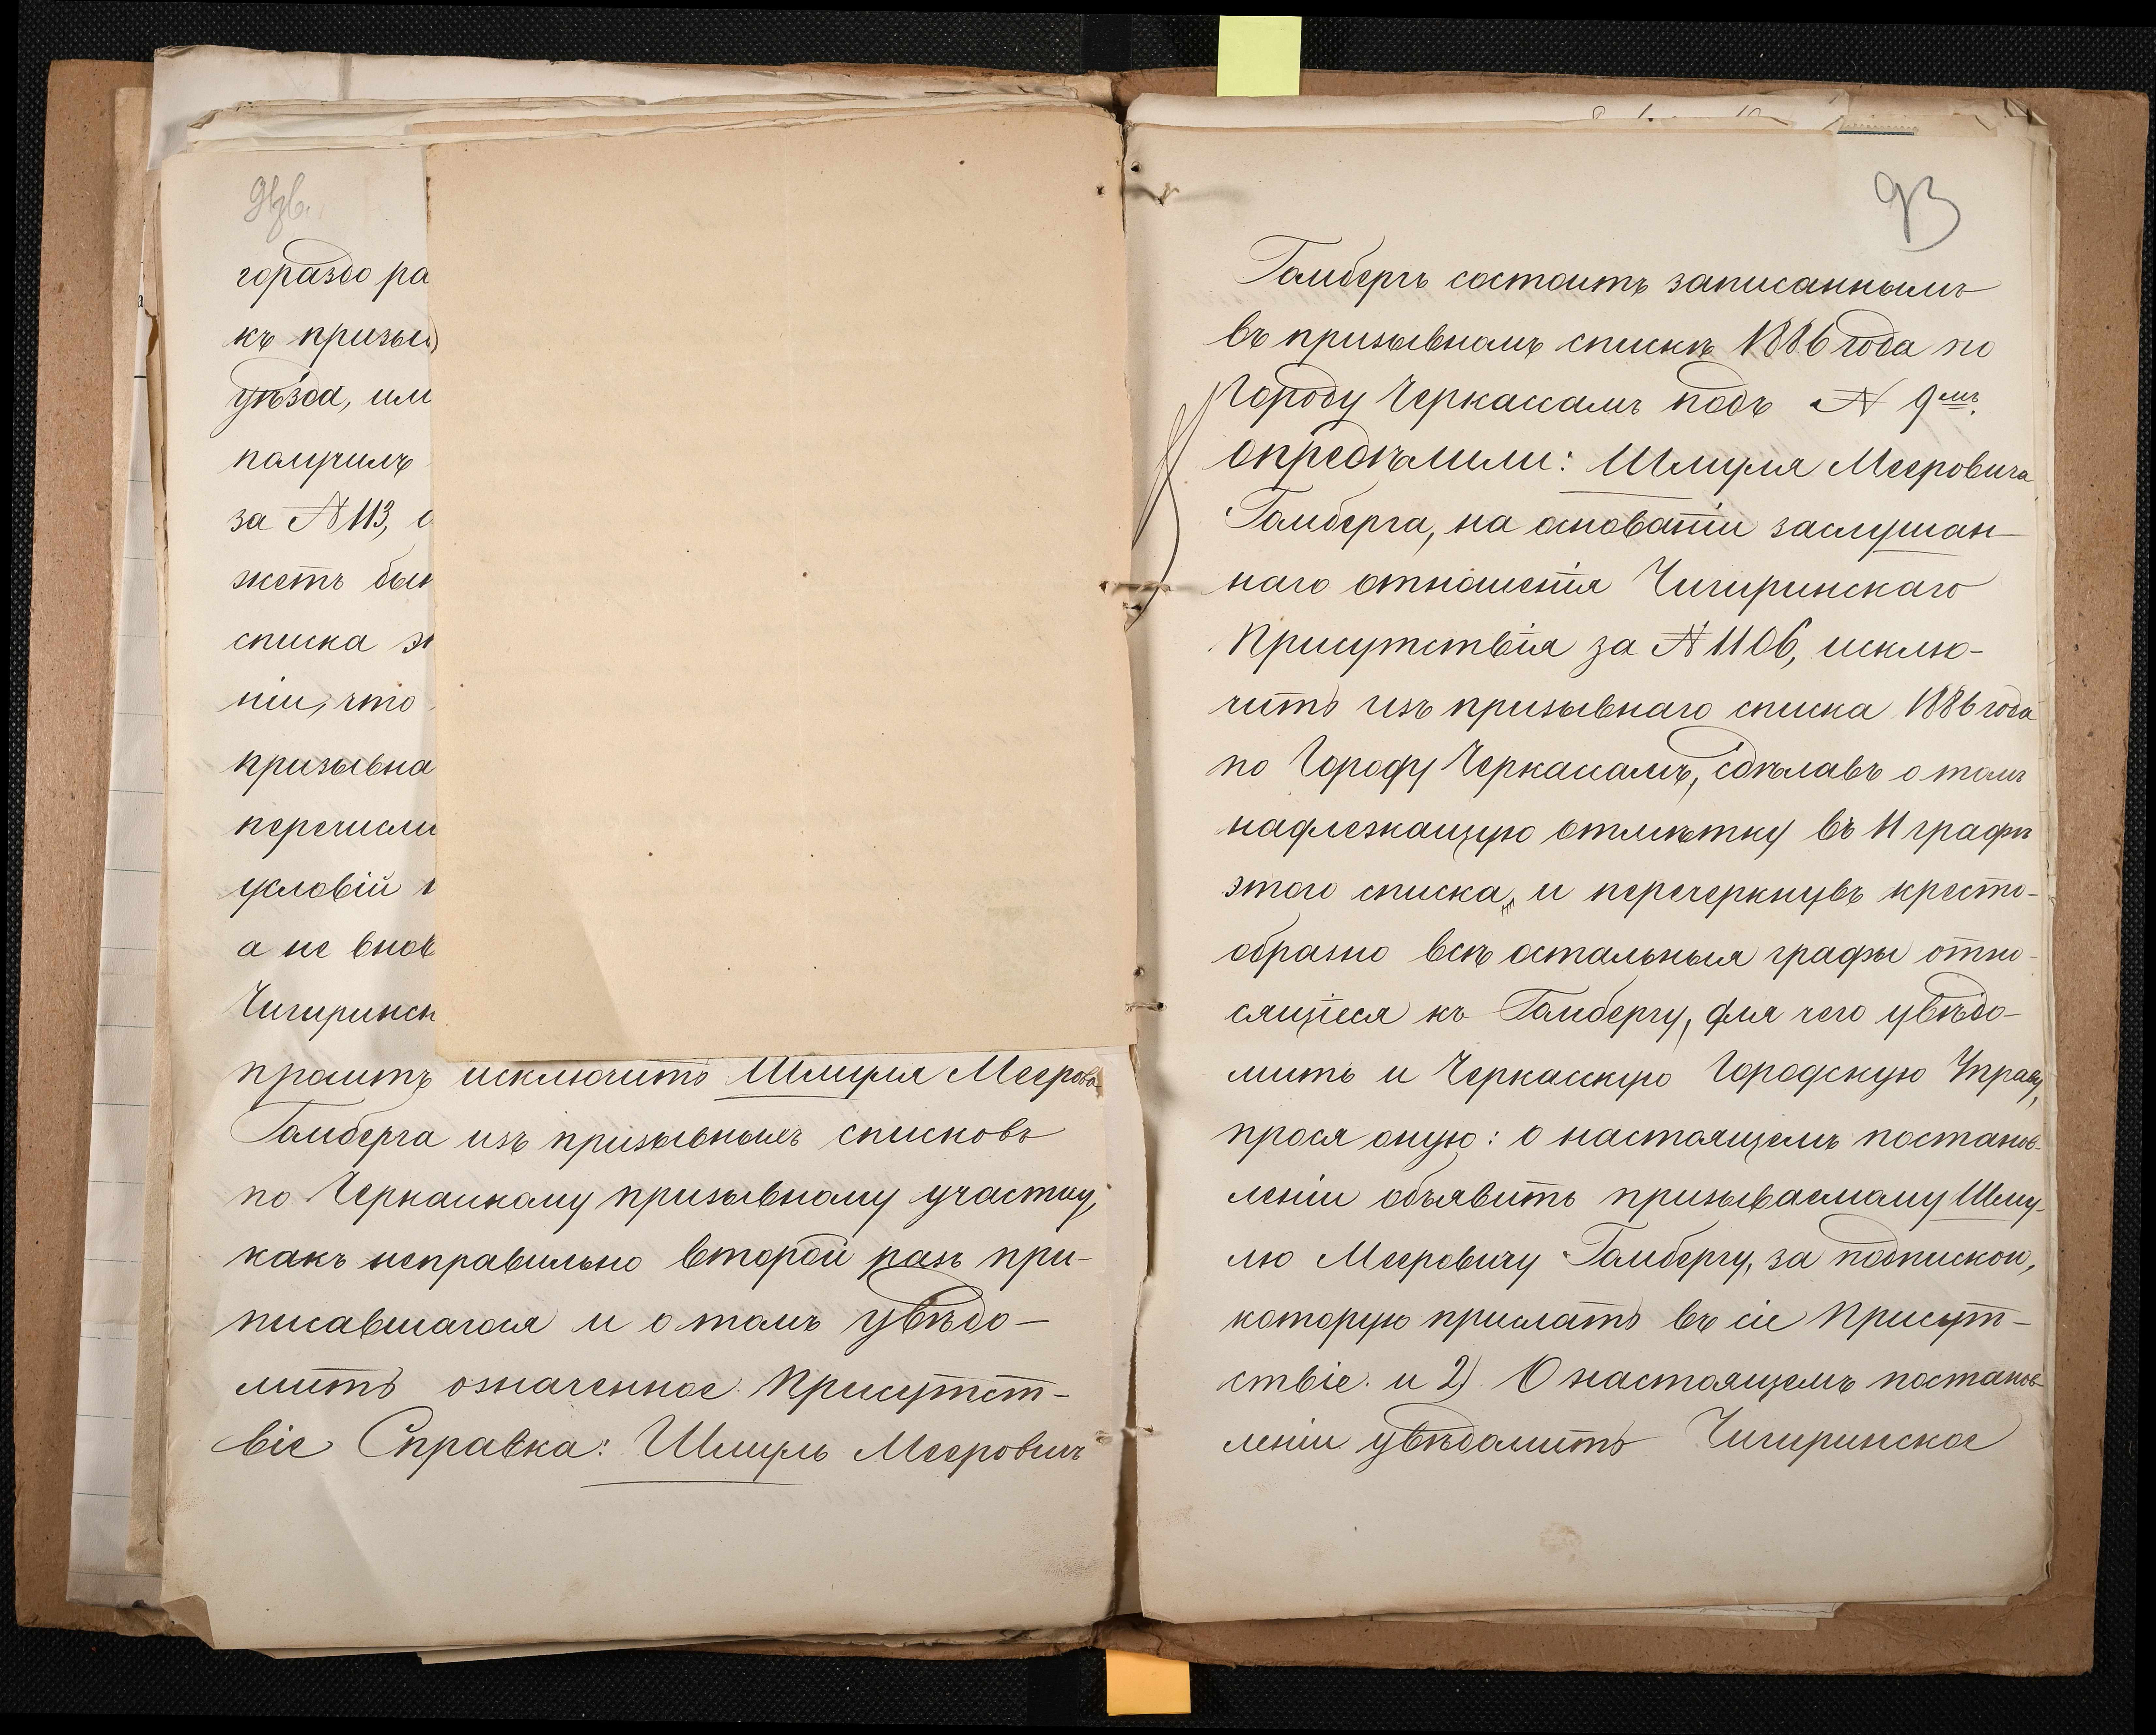 гораздо ра
къ призыв
уѣзда, им
получилъ
за № 113, с
жетъ быт
списка
ніи, что
призывна
перечисли
условій
а не внов
Чигиринск
проситъ исключить Шмуля Меерова
Гамберга изъ призывныхъ списковъ
по Черкаскому призывному участку,
какъ неправильно второй разъ при-
писавшагося и о томъ увѣдо-
мить означенное Присутст-
віе Справка: Шмуль Мееровичъ
93
Гамбергъ состоитъ записаннымъ
въ призывномъ спискѣ 1886 года по
Городу Черкассамъ подъ № 9мъ.
Опредѣлили: Шмуля Мееровича
Гамберга, на основаніи заслушан-
наго отношенія Чигиринскаго
Присутствія за № 1106, исклю-
чить изъ призывнаго списка 1886 года
по Городу Черкассамъ, сдѣлавъ о томъ
надлежащую отмѣтку въ 11 графѣ
этого списка, и перечеркнувъ кресто-
образно всѣ остальныя графы отно-
сящіеся къ Гамбергу, для чего увѣдо-
мить и Черкасскую Городскую Управу,
прося оную: о настоящемъ постанов-
леніи объявить призываемому Шму-
лю Мееровичу Гамбергу, за подпиской,
которую прислать въ сіе Присут-
ствіе. и 2) О настоящемъ постанов-
леніи увѣдомить Чигиринское